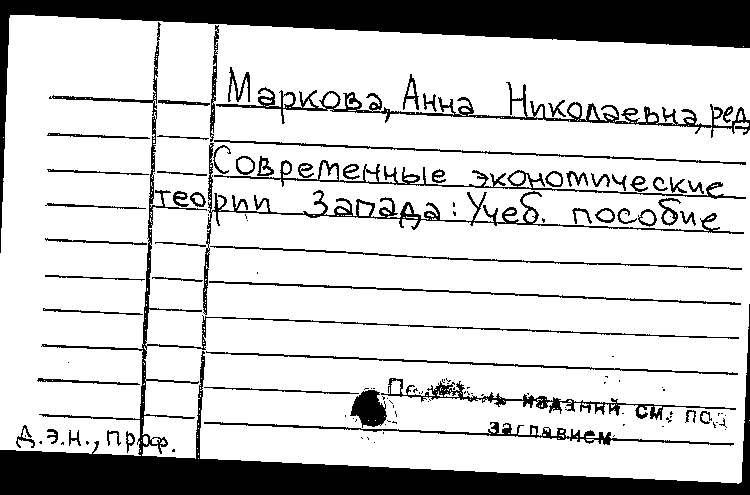 Маркова, Анна Николаевна, ред
Современные экономические
теории Запада: Учеб. пособие
изданий см. под
заглавием
д.э.н., проф.